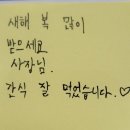 새해 복 많이
받으세요
사장님.
간식 잘 먹었습니다.♡